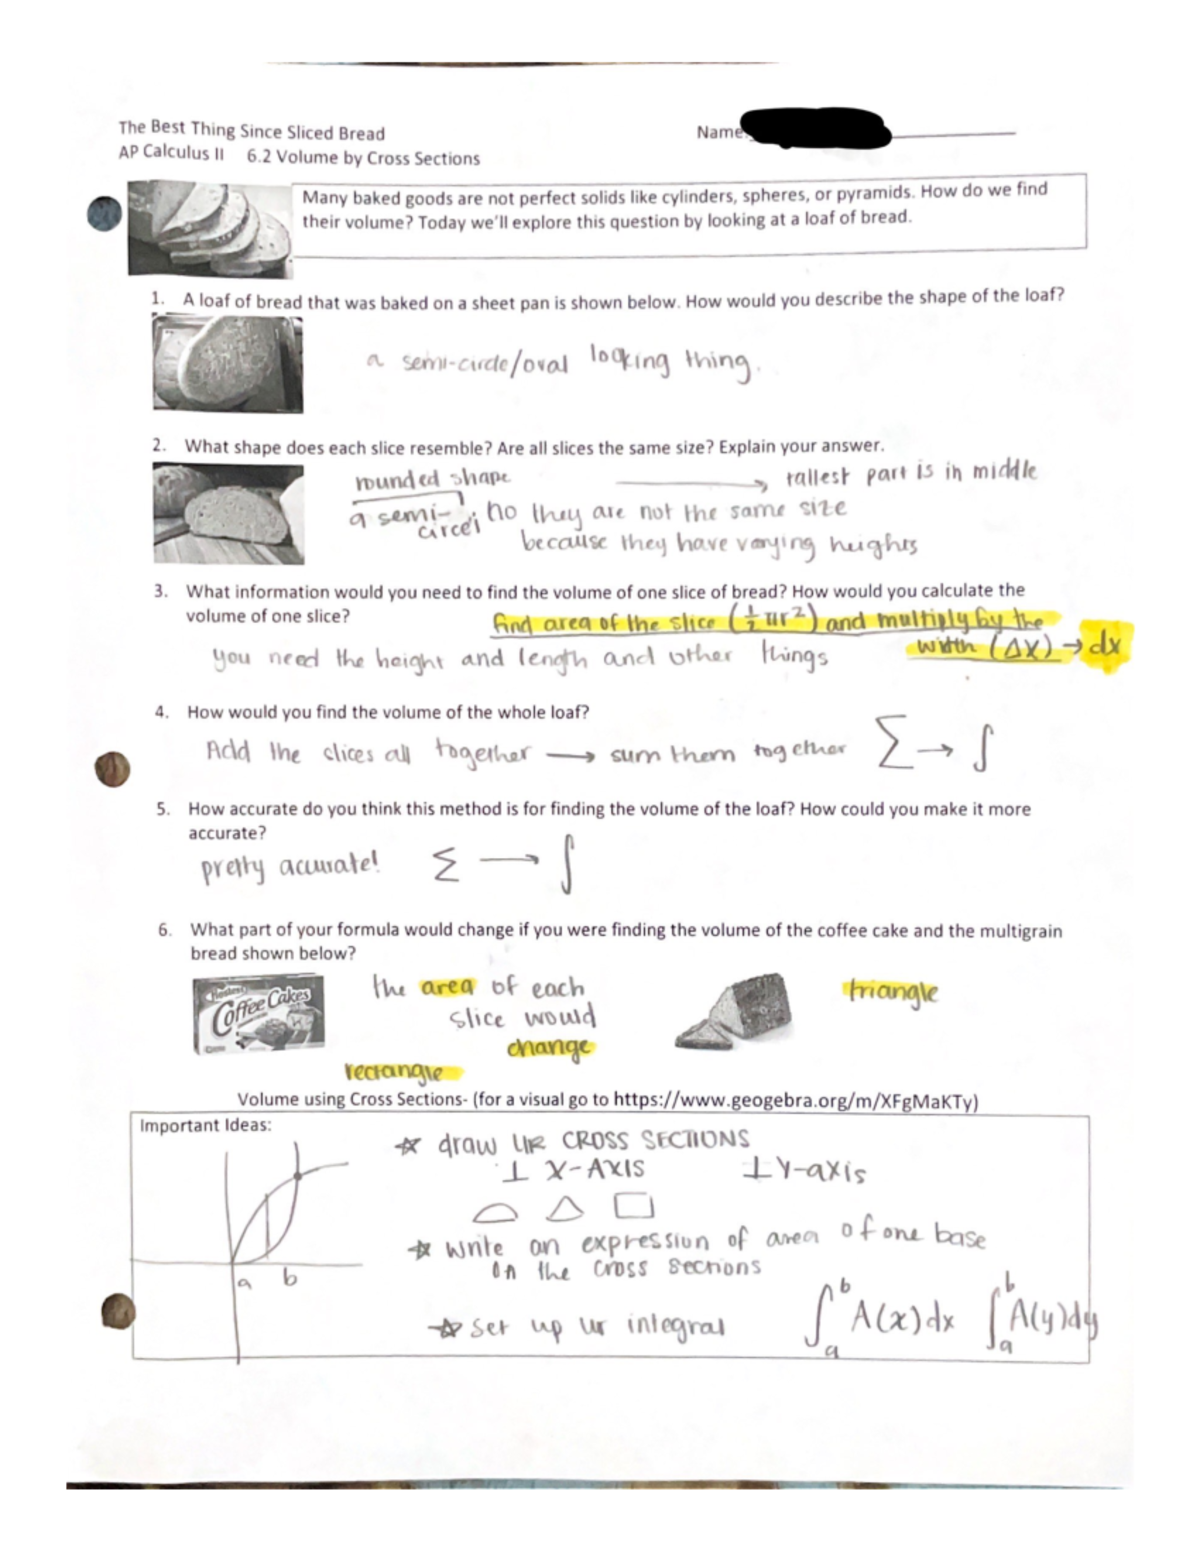 The Best Thing Since Sliced Bread
Name:
AP Calculus II 6.2 Volume by Cross Sections
Many baked goods are not perfect solids like cylinders, spheres, or pyramids. How do we find
their volume? Today we'll explore this question by looking at a loaf of bread.
1. A loaf of bread that was baked on a sheet pan is shown below. How would you describe the shape of the loaf?
a semi-circle/oval looking thing.
2. What shape does each slice resemble? Are all slices the same size? Explain your answer.
rounded shape → tallest part is in middle
a semi-
circel
; no they are not the same size
because they have varying heights
3. What information would you need to find the volume of one slice of bread? How would you calculate the
volume of one slice?
find area of the slice (½πr²) and multiply by the
width (Δx) → dx
you need the height and length and other things
4. How would you find the volume of the whole loaf?
Add the slices all together → sum them together Σ → ∫
5. How accurate do you think this method is for finding the volume of the loaf? How could you make it more
accurate?
pretty accurate! Σ → ∫
6. What part of your formula would change if you were finding the volume of the coffee cake and the multigrain
bread shown below?
Coffee Cakes
the area of each
slice would
change
rectangle
triangle
Volume using Cross Sections- (for a visual go to https://www.geogebra.org/m/XFgMaKTy)
Important Ideas:
a b
☆ draw UR CROSS SECTIONS
⊥ X-AXIS ⊥ Y-axis
☆ write an expression of area of one base
on the cross sections
☆ set up ur integral ∫ₐᵇ A(x)dx ∫ₐᵇ A(y)dy